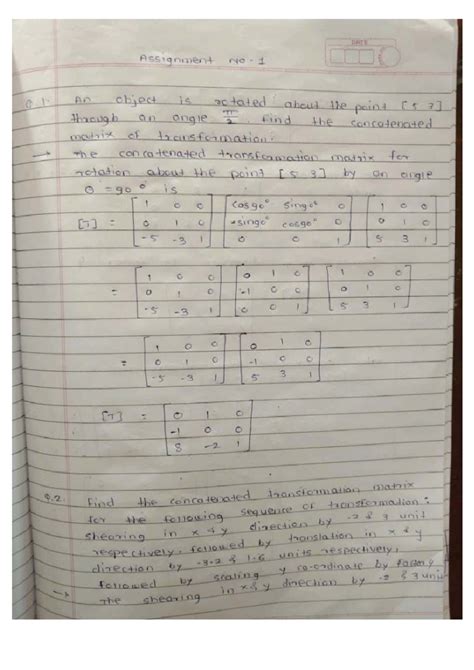 DATE
Assignment No. 1
Q.1. An object is rotated about the point [5 3]
through an angle π/2. Find the concatenated
matrix of transformation.
→ The concatenated transformation matrix for
rotation about the point [5 3] by an angle
θ = 90° is
[T] = [1 0 0; 0 1 0; -5 -3 1] [cos90° sin90° 0; -sin90° cos90° 0; 0 0 1] [1 0 0; 0 1 0; 5 3 1]
= [1 0 0; 0 1 0; -5 -3 1] [0 1 0; -1 0 0; 0 0 1] [1 0 0; 0 1 0; 5 3 1]
= [1 0 0; 0 1 0; -5 -3 1] [0 1 0; -1 0 0; 5 3 1]
[T] = [0 1 0; -1 0 0; 8 -2 1]
Q.2. Find the concatenated transformation matrix
for the following sequence of transformation:
shearing in x & y direction by -2 & 3 unit
respectively, followed by translation in x & y
direction by -3.2 & 1.6 units respectively,
followed by scaling y co-ordinate by
→ The shearing in x & y direction by -2 & 3 unit